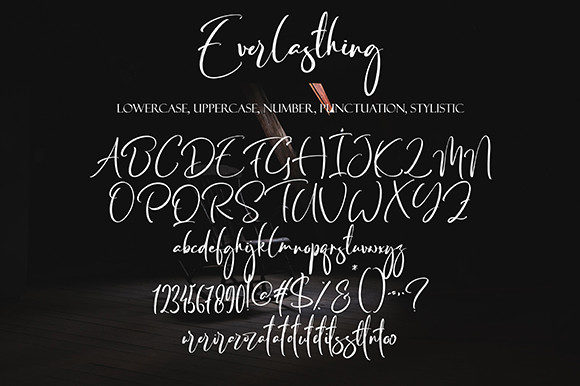 Everlasthing
LOWERCASE, UPPERCASE, NUMBER, PUNCTUATION, STYLISTIC
ABCDEFGHIJKLMN
OPQRSTUVWXYZ
abcdefghijklmnopqrstuvwxyz
1234567890!@#$%&*()-.,?